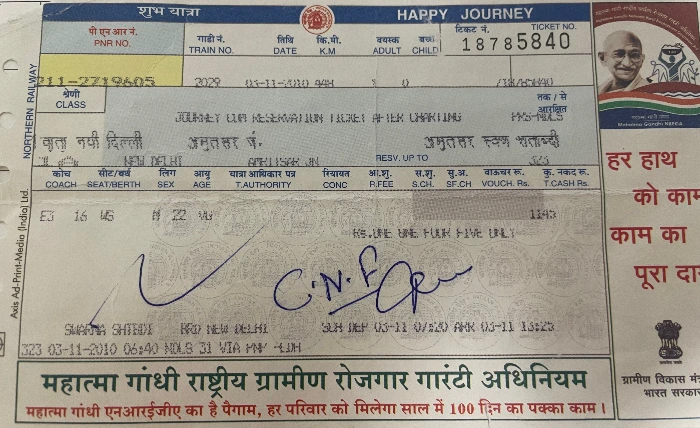 शुभ यात्रा HAPPY JOURNEY
पी एन आर नं. गाडी नं. तिथि कि.मी. वयस्क बच्चे टिकट नं. TICKET NO.
PNR NO. TRAIN NO. DATE K.M ADULT CHILD 18785840
211-2719605 2029 03-11-2010 0
श्रेणी तक / से
CLASS आरक्षित
JOURNEY CUM RESERVATION TICKET AFTER CHARTING
नयी दिल्ली अमृतसर जं. अमृतसर स्वर्ण शताब्दी
NEW DELHI AMRITSAR JN RESV. UP TO 323
कोच सीट/बर्थ लिंग आयु यात्रा आधिकार पत्र रियायत आ.शु. स.शु. सु.अ. वाऊचर रू. कु. नकद रू.
COACH SEAT/BERTH SEX AGE T.AUTHORITY CONC R.FEE S.CH. SF.CH VOUCH. Rs. T.CASH Rs.
E3 16 WS M 22 1145
RS.ONE ONE FOUR FIVE ONLY
C.N.F
NEW DELHI SCH DEP 03-11 07:20 ARR 03-11 13:25
323 03-11-2010 06:40 NDLS 31 VIA
महात्मा गांधी राष्ट्रीय ग्रामीण रोजगार गारंटी अधिनियम
महात्मा गांधी एनआरईजीए का है पैगाम, हर परिवार को मिलेगा साल में 100 दिन का पक्का काम।
NORTHERN RAILWAY
Axis Ad-Print-Media (India) Ltd.
Mahatma Gandhi NREGA
हर हाथ
को काम
काम का
पूरा दा
ग्रामीण विकास मं
भारत सरकार